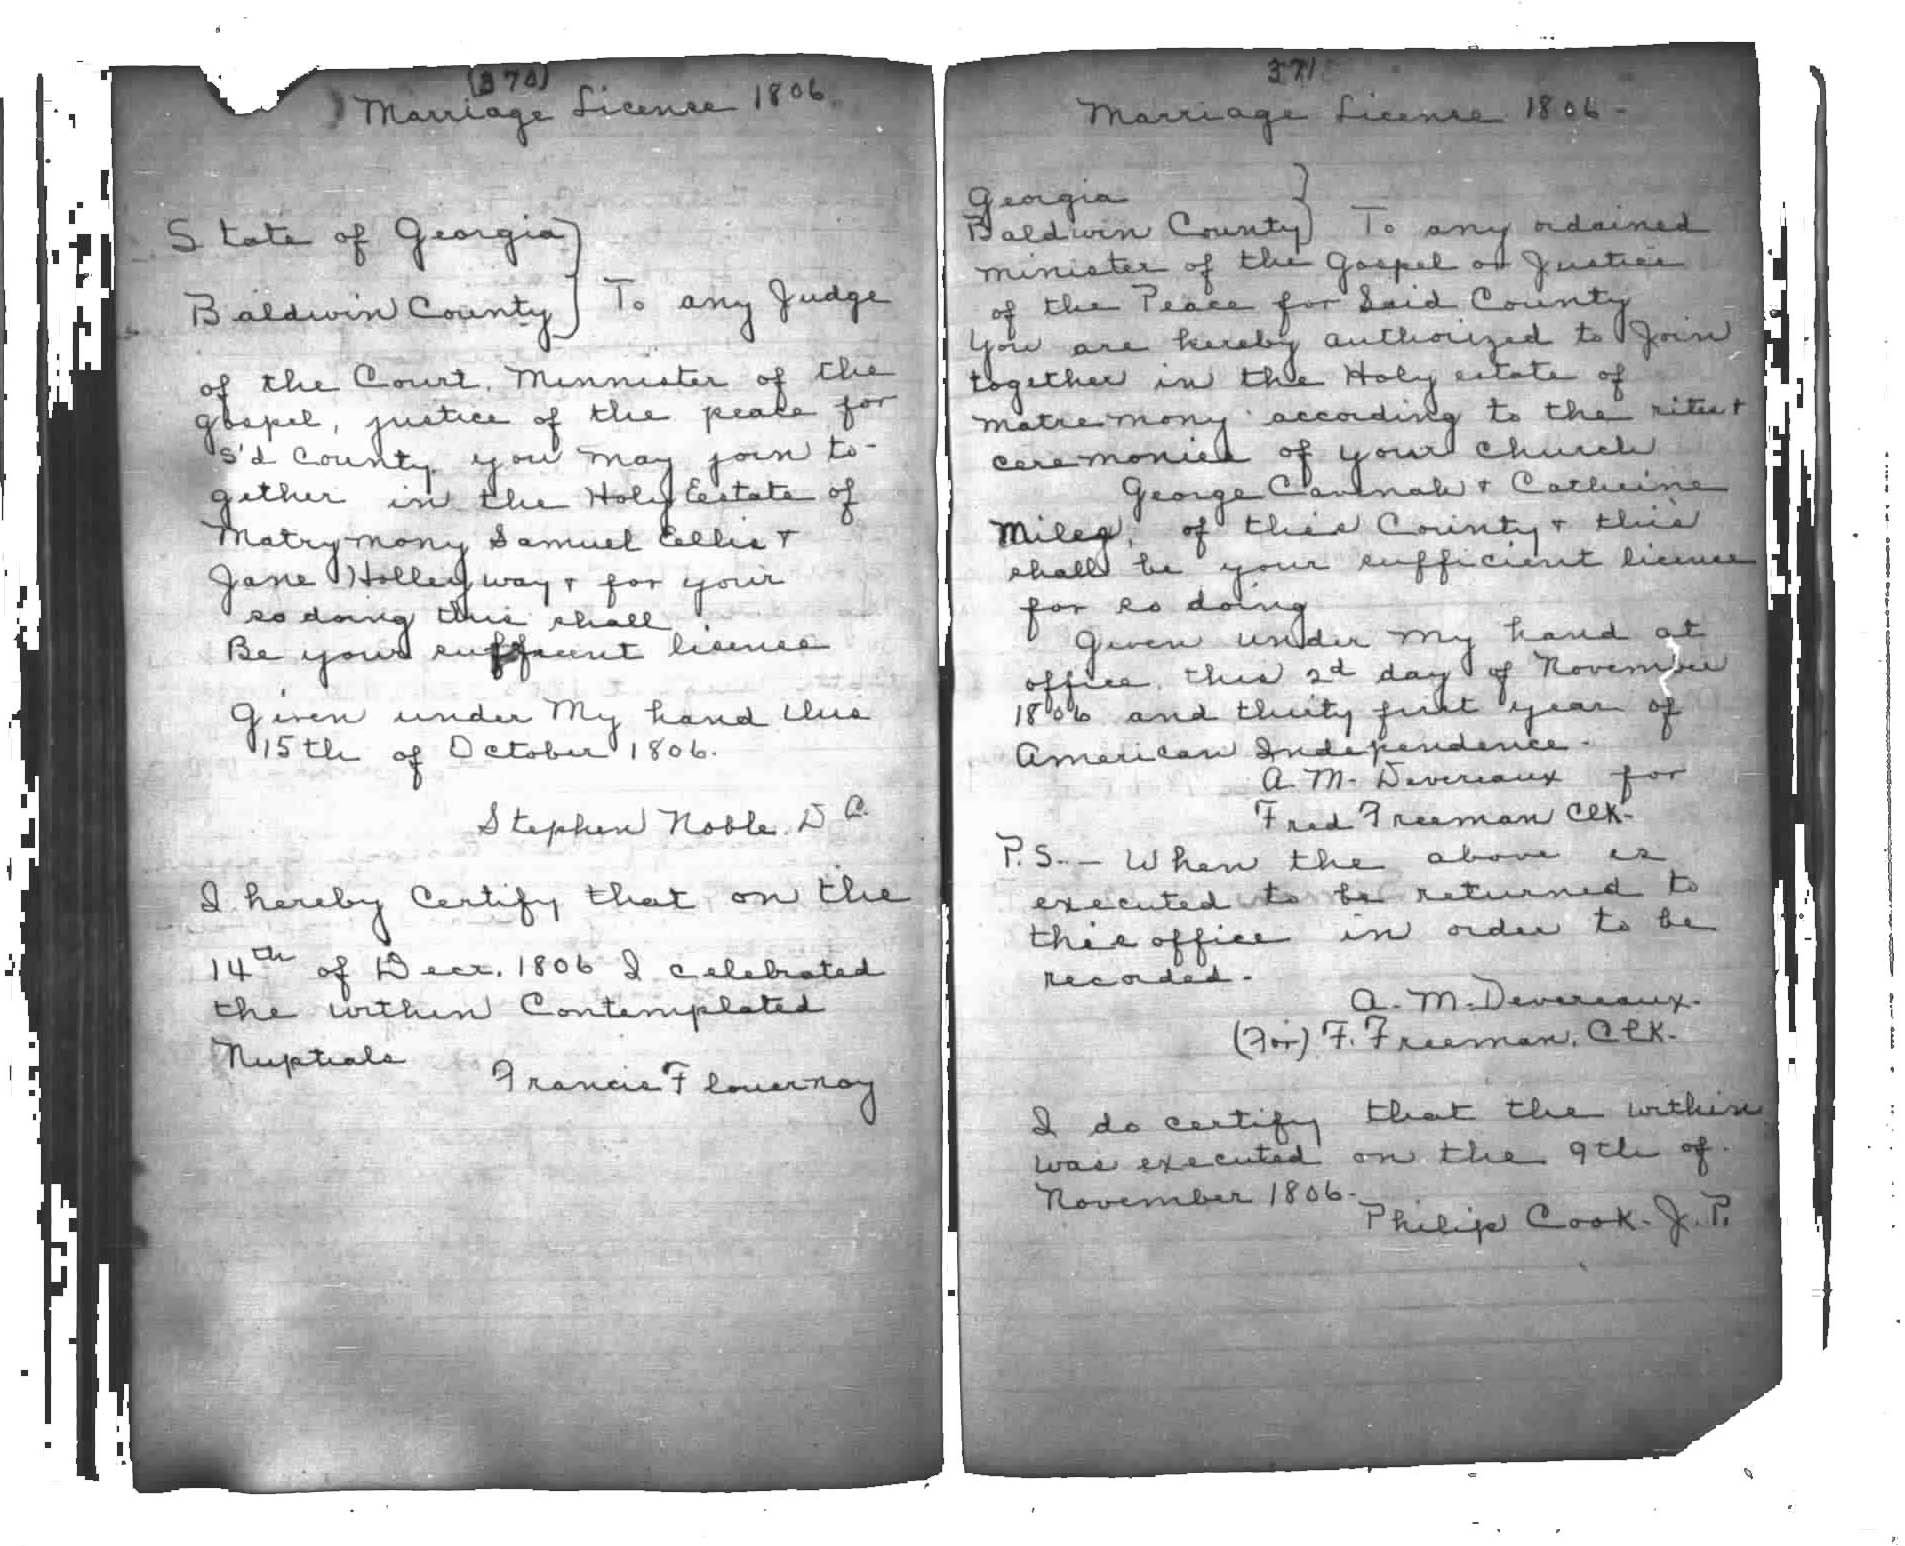 (370)
Marriage License 1806.
State of Georgia }
Baldwin County } To any Judge
of the Court. Minnister of the
gospel, justice of the peace for
s'd County. you may join to-
gether in the Holy Eestate of
Matrymony Samuel Ellis +
Jane Holleyway + for your
so doing this shall
Be your suffecent license
Given under My hand this
15th of October 1806.
Stephen Noble. D C.
I hereby Certify that on the
14th of Decr. 1806 I celebrated
the within Contemplated
Nuptials
Francis Flouernoy
371
Marriage License 1806-
Georgia }
Baldwin County } To any ordained
minister of the Gospel or Justice
of the Peace for Said County
You are hereby authorized to Join
together in the Holy estate of
matremony according to the rites +
ceremonies of your church
George Cavenah + Catheine
Miles, of this County + this
shall be your sufficient licence
for so doing
Given under my hand at
office this 2d day of November
1806 and thirty first year of
American Independence.
A. M. Devereaux for
Fred Freeman Clk-
P.S. - When the above is
executed to be returned to
this office in order to be
recorded-
A. M. Devereaux-
(For) F. Freeman. Clk-
I do certify that the within
was executed on the 9th of
November 1806-
Philip Cook- J. P.